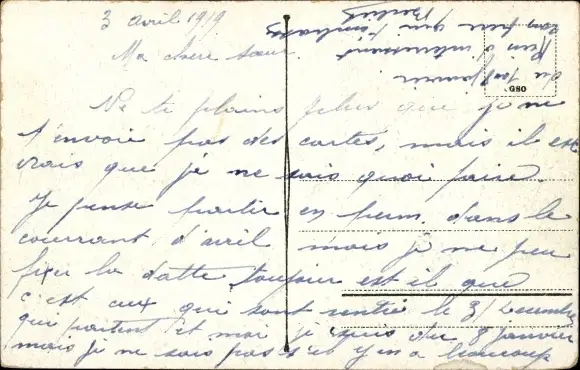 3 avril 1919
Ma chere sœur
Ne te plains plus que je ne
t'envoie pas des cartes, mais il est
vrais que je ne sais quoi faire.
Je pense partir en perm. dans le
courrant d'avril mais je ne peu
fixer la datte, toujour est il que
c'est eux qui sont rentré le 31 Decembre
qui partent et moi je suis du 8 janvier
mais je ne sais pas s'il y en a beaucoup
du janvier
Rien d'interressant
ton frere qui t'embrasse
GSO